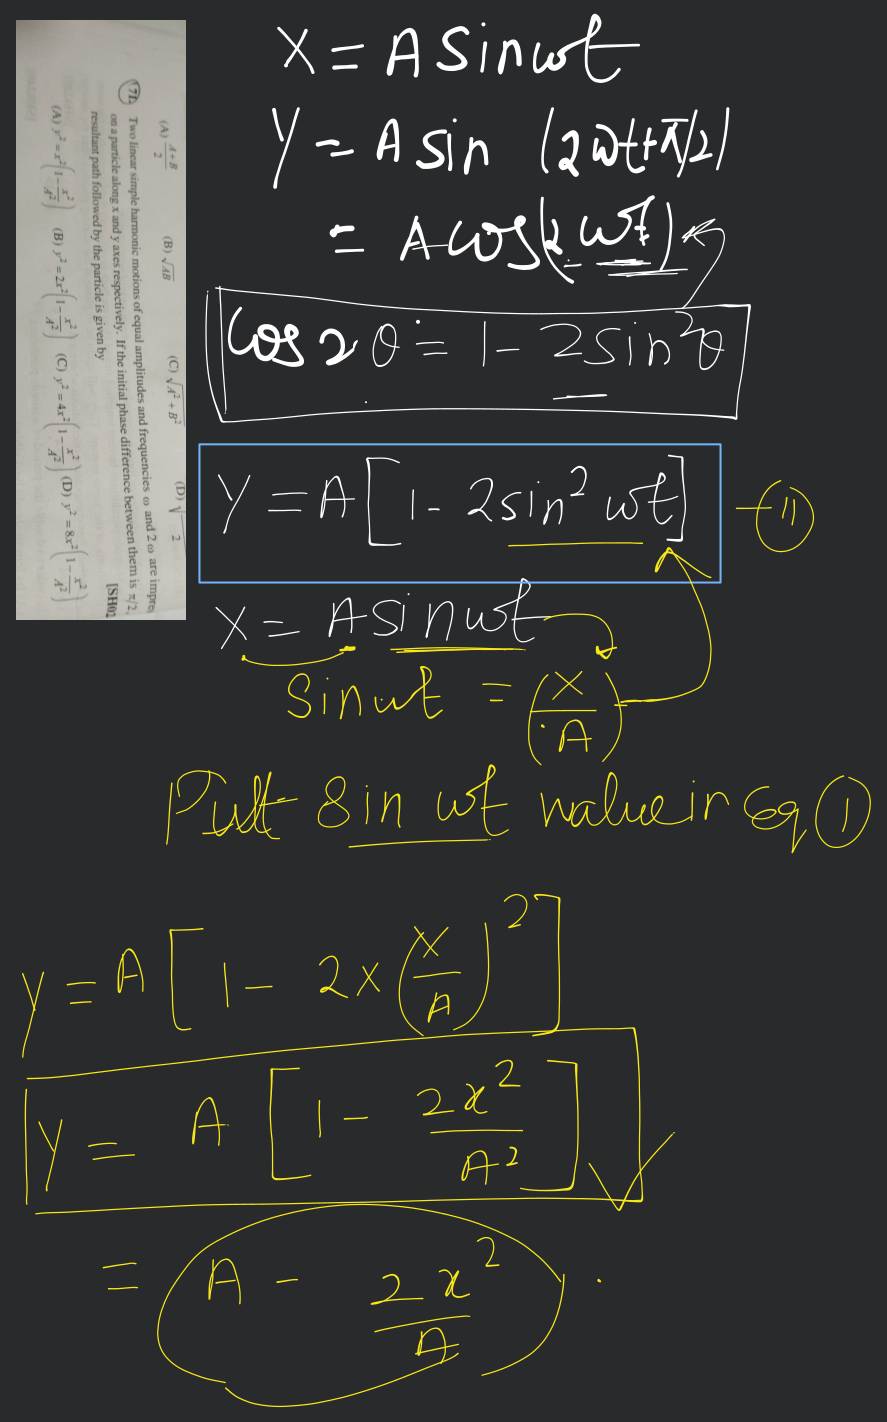 (A) A+B/2 (B) √AB (C) √A² + B² (D) √ 2
71. Two linear simple harmonic motions of equal amplitudes and frequencies ω and 2 ω are impre
on a particle along x and y axes respectively. If the initial phase difference between them is π/2,
resultant path followed by the particle is given by [SH02
(A) y² = x²(1 − x²/A²) (B) y² = 2x²(1 − x²/A²) (C) y² = 4x²(1 − x²/A²) (D) y² = 8x²(1 − x²/A²)
X = A Sinωt
Y = A sin (2ωt+π/2)
= A cos(2 ωt)
Cos 2θ = 1 - 2sin²θ
Y = A[1 - 2sin² ωt] -(11)
X = A Sinωt
Sinωt = (X/A)
Putt Sin ωt value in Eq (1)
Y = A [1 - 2 x (X/A)²]
Y = A [1 - 2x²/A²]
= A - 2x²/A .